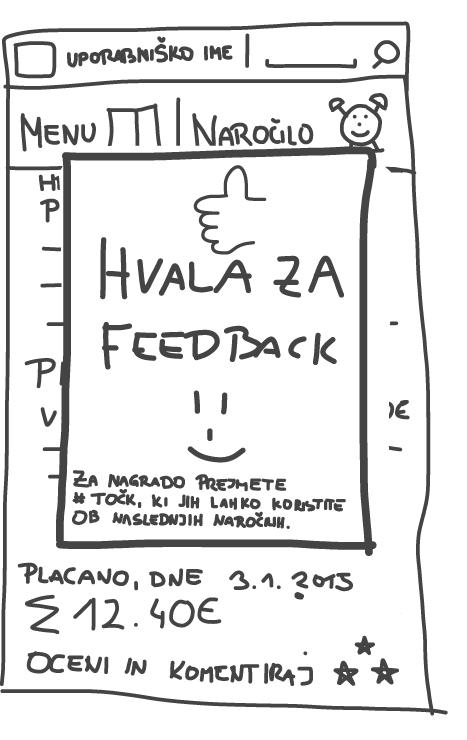 UPORABNIŠKO IME
MENU | NAROČILO
P
HVALA ZA
FEEDBACK
P
V
ZA NAGRADO PREJMETE
# TOČK, KI JIH LAHKO KORISTITE
OB NASLEDNJIH NAROČNIH.
PLACANO, DNE 3.1.2015
Σ 12.40€
OCENI IN KOMENTIRAJ